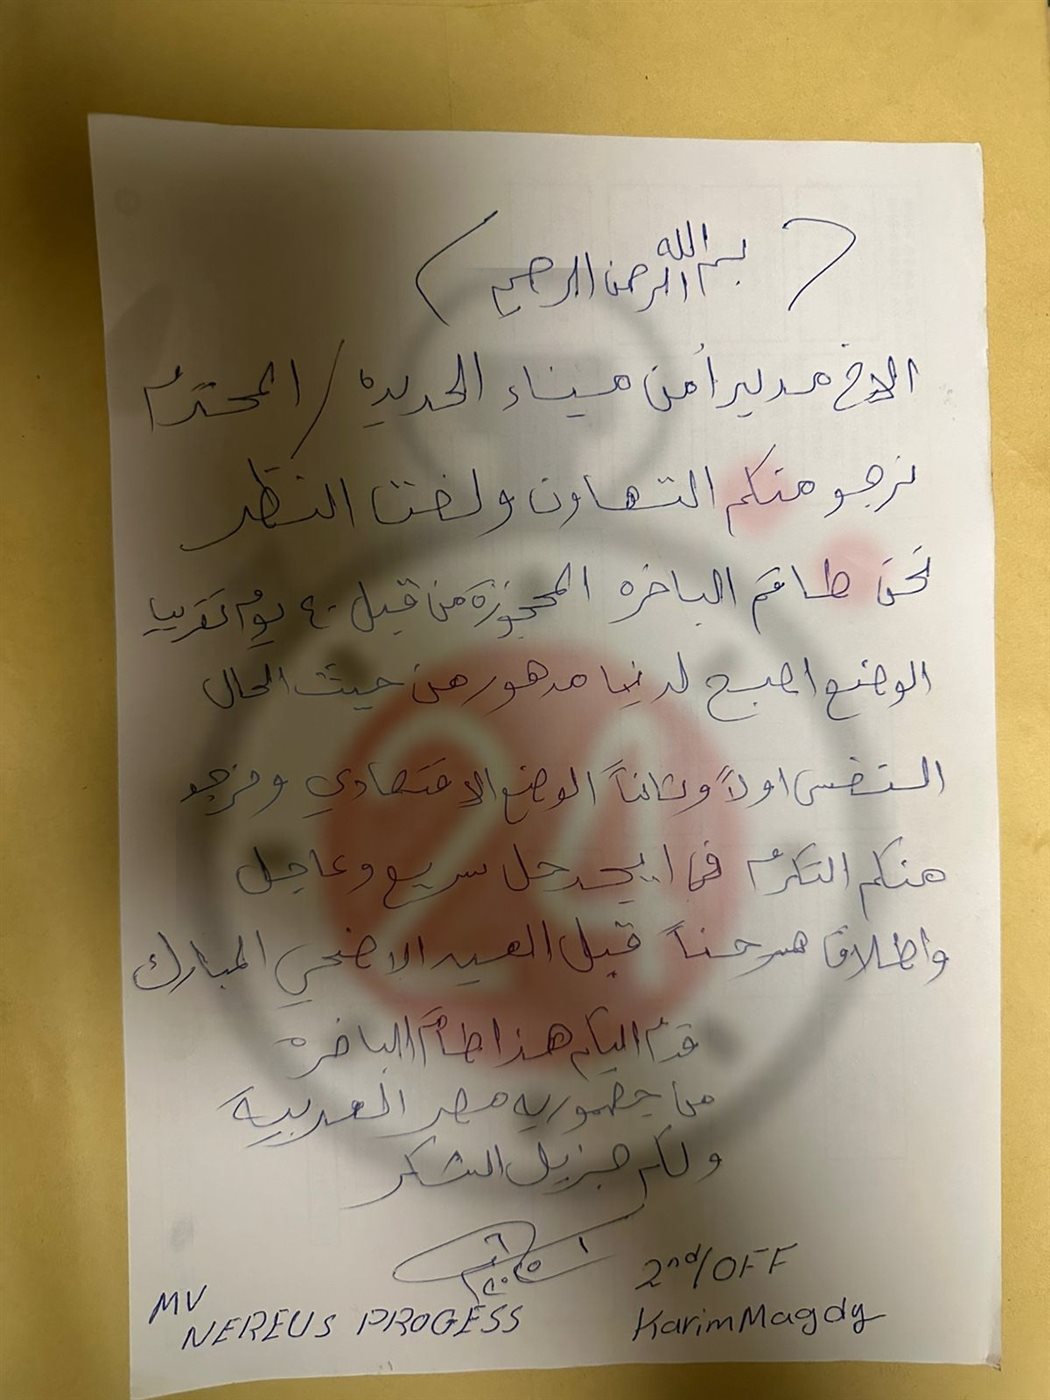 بسم الله الرحمن الرحيم
الاخ مدير أمن ميناء الحديده / المحترم
نرجو منكم التعاون ولفت النظر
نحن طاقم الباخره المحجوزة من قبل ٤٠ يوم تقريبا
الوضع اصبح لدينا مدهور من حيث الحال
النفسي اولاً وثانياً الوضع الاقتصادي ونرجو
منكم التكرم في ايجد حل سريع وعاجل
واطلاق سرحنا قبل العيد الاضحي المبارك
قدم اليكم هذا طاقم الباخره
من جمهوريه مصر العربية
ولكم جزيل الشكر
2nd/OFF
Karim Magdy
MV
NEREUS PROGESS
24